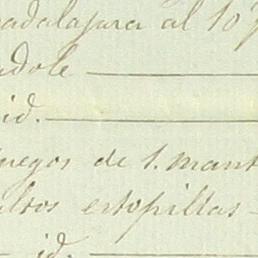 adalajara al 10 p
ndole
id.
uegos de 1. mant
ultos estopillas
id.